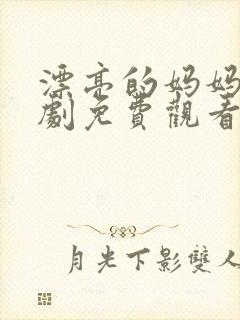 漂亮的妈妈
劇免費觀看
月光下影雙人